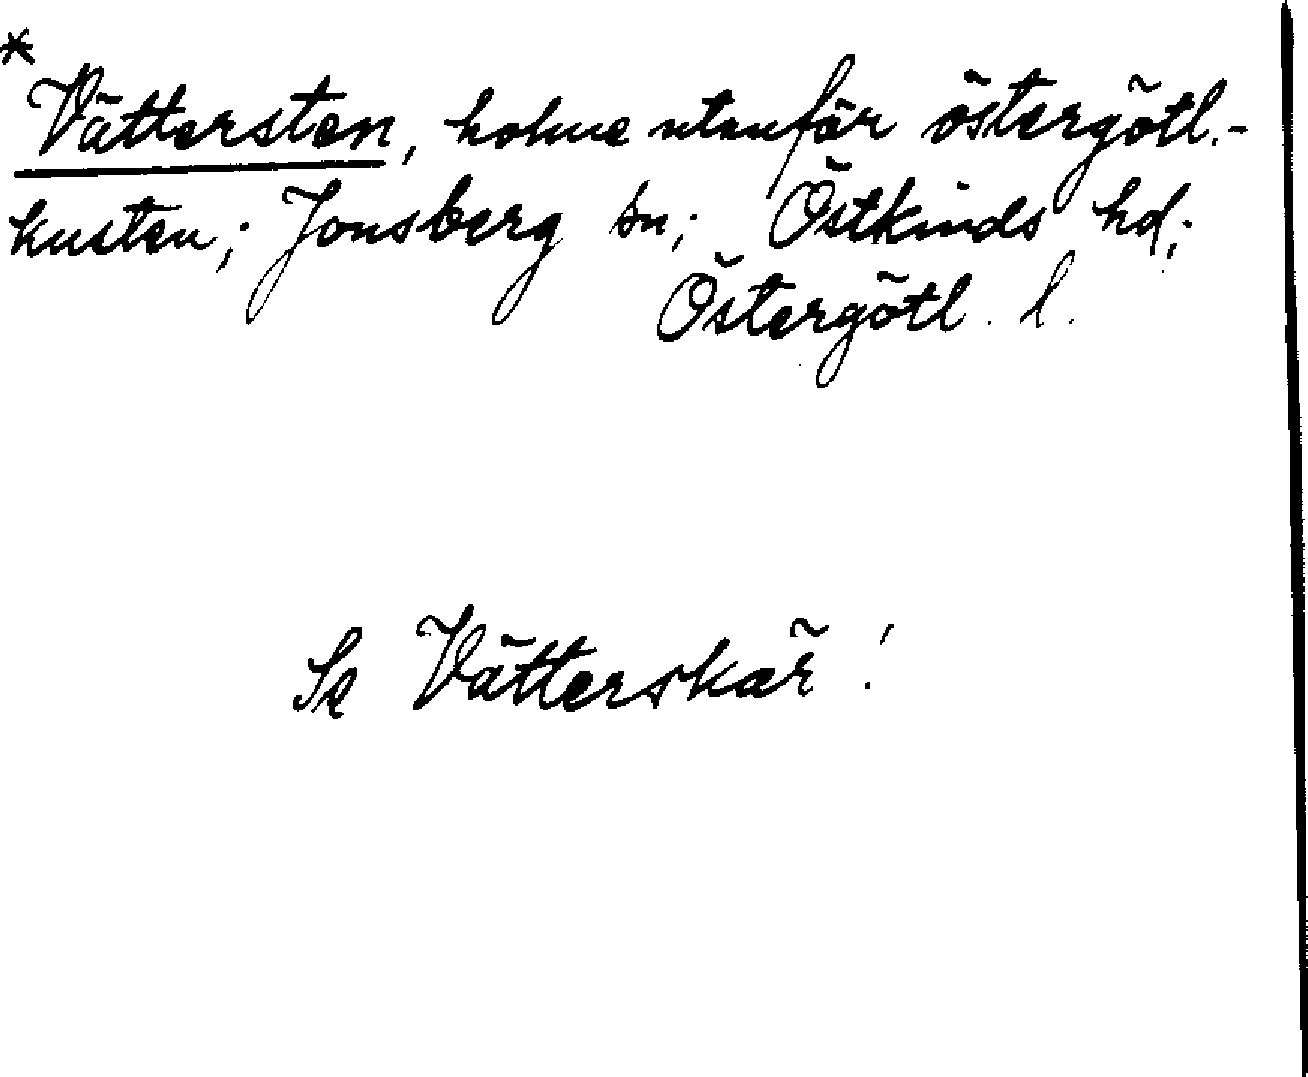 *
Vättersten, holme utanför östergötl.-
kusten; Jonsberg sn; Östkinds hd;
Östergötl. l.
Se Vätterskär!